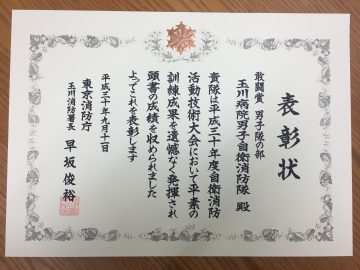 表彰状
敢闘賞 男子隊の部
玉川病院男子自衛消防隊 殿
貴隊は平成三十年度自衛消防
活動技術大会において平素の
訓練成果を遺憾なく発揮され
頭書の成績を収められました
よってこれを表彰します
平成三十年九月十一日
東京消防庁
玉川消防署長 早坂俊裕